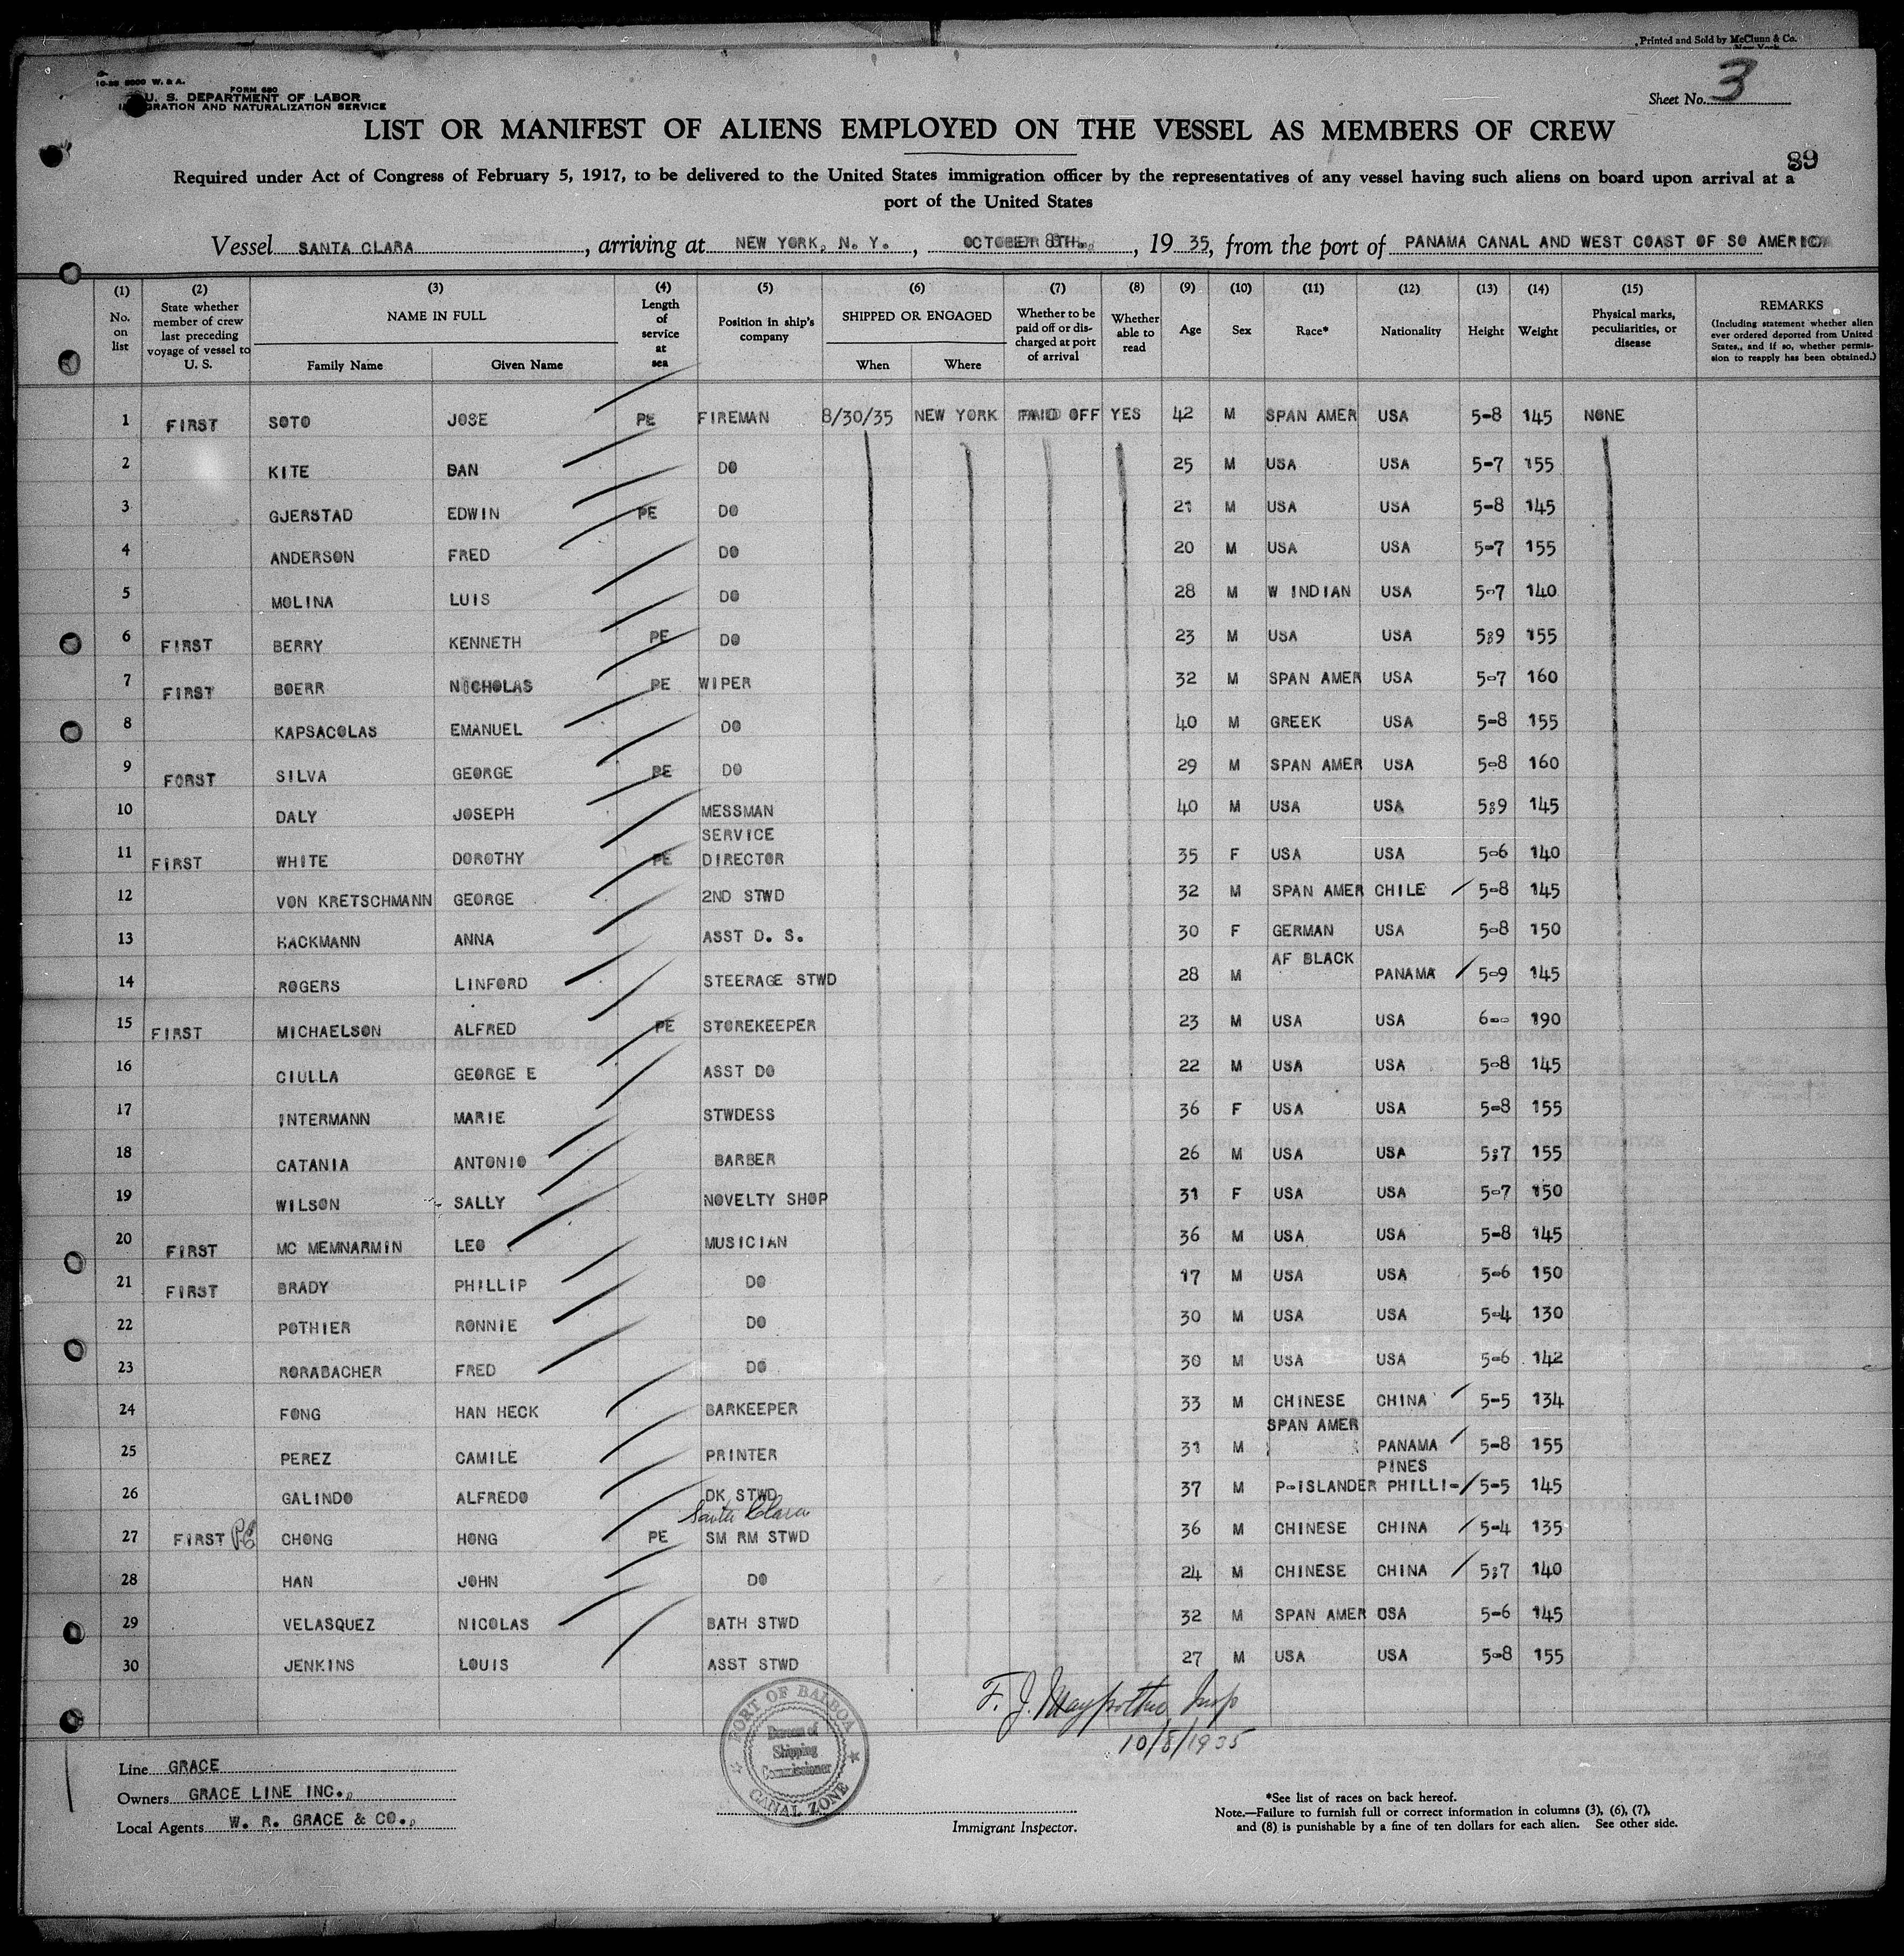 Printed and Sold by McClunn & Co.
New York
10-28 2000 W. & A.
FORM 680
U. S. DEPARTMENT OF LABOR
IMMIGRATION AND NATURALIZATION SERVICE
Sheet No. 3
LIST OR MANIFEST OF ALIENS EMPLOYED ON THE VESSEL AS MEMBERS OF CREW
89
Required under Act of Congress of February 5, 1917, to be delivered to the United States immigration officer by the representatives of any vessel having such aliens on board upon arrival at a
port of the United States
Vessel SANTA CLARA, arriving at NEW YORK, N. Y., OCTOBER 8TH, 1935, from the port of PANAMA CANAL AND WEST COAST OF SO AMERICA
(1) No. on list (2) State whether member of crew last preceding voyage of vessel to U. S. (3) NAME IN FULL Family Name Given Name (4) Length of service at sea (5) Position in ship's company (6) SHIPPED OR ENGAGED When Where (7) Whether to be paid off or discharged at port of arrival (8) Whether able to read (9) Age (10) Sex (11) Race* (12) Nationality (13) Height (14) Weight (15) Physical marks, peculiarities, or disease REMARKS (Including statement whether alien ever ordered deported from United States,, and if so, whether permission to reapply has been obtained.)
1 FIRST SOTO JOSE PE FIREMAN 8/30/35 NEW YORK PAID OFF YES 42 M SPAN AMER USA 5-8 145 NONE
2 KITE DAN DO 25 M USA USA 5-7 155
3 GJERSTAD EDWIN PE DO 21 M USA USA 5-8 145
4 ANDERSON FRED DO 20 M USA USA 5-7 155
5 MOLINA LUIS DO 28 M W INDIAN USA 5-7 140
6 FIRST BERRY KENNETH PE DO 23 M USA USA 5;9 155
7 FIRST BOERR NICHOLAS PE WIPER 32 M SPAN AMER USA 5-7 160
8 KAPSACOLAS EMANUEL DO 40 M GREEK USA 5-8 155
9 FORST SILVA GEORGE PE DO 29 M SPAN AMER USA 5-8 160
10 DALY JOSEPH MESSMAN 40 M USA USA 5;9 145
11 FIRST WHITE DOROTHY PE SERVICE DIRECTOR 35 F USA USA 5-6 140
12 VON KRETSCHMANN GEORGE 2ND STWD 32 M SPAN AMER CHILE 5-8 145
13 HACKMANN ANNA ASST D. S. 30 F GERMAN USA 5-8 150
14 ROGERS LINFORD STEERAGE STWD 28 M AF BLACK PANAMA 5-9 145
15 FIRST MICHAELSON ALFRED PE STOREKEEPER 23 M USA USA 6-- 190
16 CIULLA GEORGE E ASST DO 22 M USA USA 5-8 145
17 INTERMANN MARIE STWDESS 36 F USA USA 5-8 155
18 CATANIA ANTONIO BARBER 26 M USA USA 5;7 155
19 WILSON SALLY NOVELTY SHOP 31 F USA USA 5-7 150
20 FIRST MC MEMNARMIN LEO MUSICIAN 36 M USA USA 5-8 145
21 FIRST BRADY PHILLIP DO 17 M USA USA 5-6 150
22 POTHIER RONNIE DO 30 M USA USA 5-4 130
23 RORABACHER FRED DO 30 M USA USA 5-6 142
24 FONG HAN HECK BARKEEPER 33 M CHINESE CHINA 5-5 134
25 PEREZ CAMILE PRINTER 31 M SPAN AMER PANAMA 5-8 155
26 GALINDO ALFREDO DK STWD 37 M P-ISLANDER PHILLI-PINES 5-5 145
Santa Clara
27 FIRST PE CHONG HONG PE SM RM STWD 36 M CHINESE CHINA 5-4 135
28 HAN JOHN DO 24 M CHINESE CHINA 5;7 140
29 VELASQUEZ NICOLAS BATH STWD 32 M SPAN AMER USA 5-6 145
30 JENKINS LOUIS ASST STWD 27 M USA USA 5-8 155
F. J. Insp
10/8/1935
PORT OF BALBOA
Bureau of
Shipping
Commissioner
CANAL ZONE
Line GRACE
Owners GRACE LINE INC.,
Local Agents W. R. GRACE & CO.,
Immigrant Inspector.
*See list of races on back hereof.
Note.—Failure to furnish full or correct information in columns (3), (6), (7),
and (8) is punishable by a fine of ten dollars for each alien. See other side.